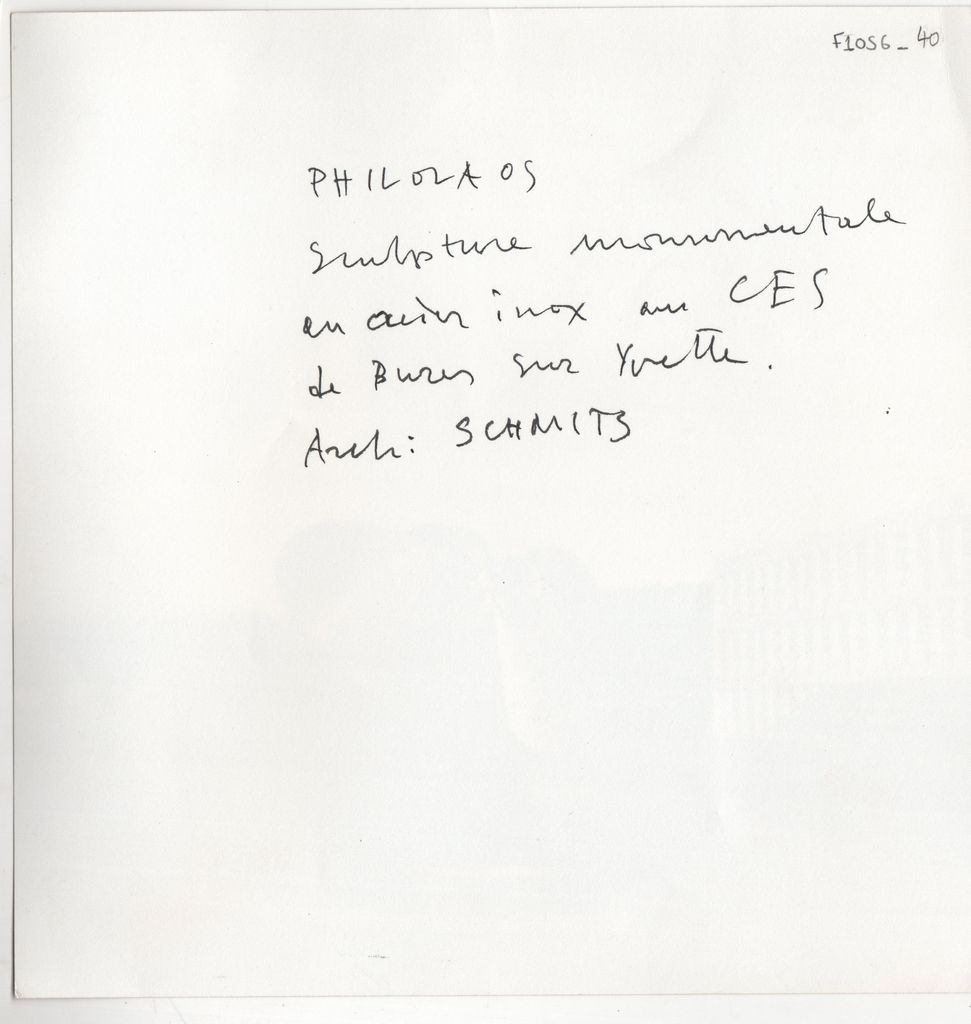 F10S6_40
PHILOLAOS
Sculpture monumentale
en acier inox au CES
de Bures sur Yvette.
Arch: SCHMITS